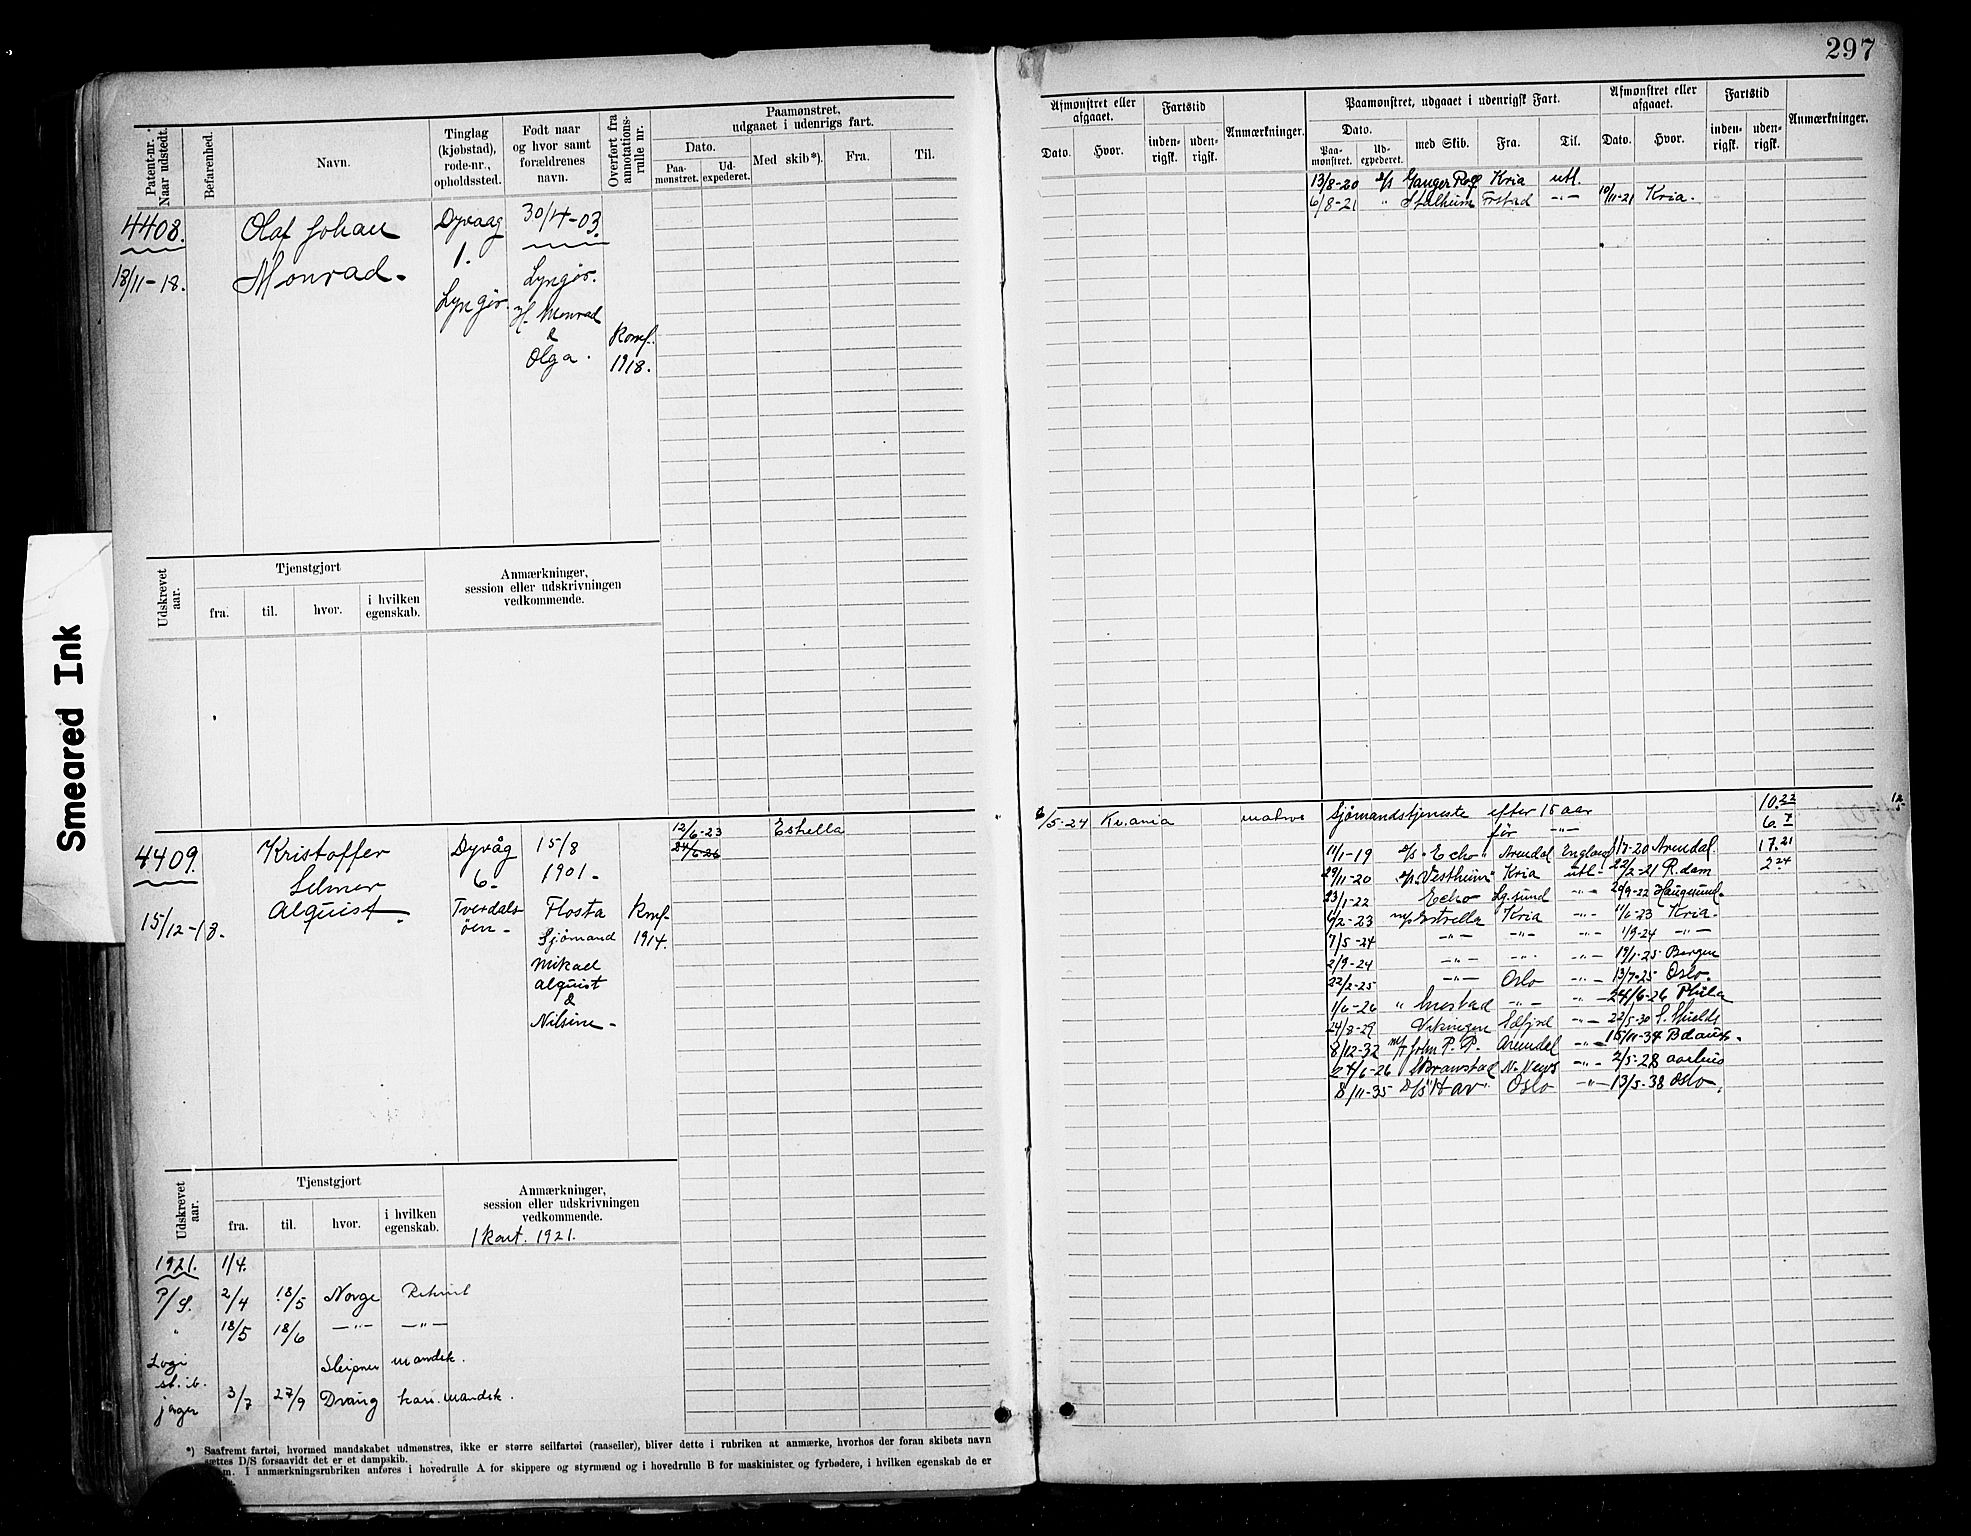 297
Patent-nr. Naar udstedt.
Befarenhed.
Navn.
Tinglag (kjøbstad), rode-nr., opholdssted.
Født naar og hvor samt forældrenes navn.
Overført fra annotations-rulle nr.
Paamønstret, udgaaet i udenrigs fart.
Dato.
Paa-mønstret.
Ud-expederet.
Med skib*).
Fra.
Til.
4408.
18/11-18.
Olaf Johan
Monrad.
Dyvaag
1.
Lyngør.
30/4-03.
Lyngør.
H. Monrad
&
Olga.
Konf.
1918.
Udskrevet aar.
Tjenstgjort
fra.
til.
hvor.
i hvilken egenskab.
Anmærkninger, session eller udskrivningen vedkommende.
Smeared Ink
4409.
15/12-18.
Kristoffer
Selmer
Alquist.
Dyvåg
6.
Tverdals
øen.
15/8
1901.
Flosta
Sjømand
Mikael
Alquist
&
Nilsine.
Konf.
1914.
12/6-23 Estrella
24/6-26
Udskrevet aar.
Tjenstgjort
fra.
til.
hvor.
i hvilken egenskab.
Anmærkninger, session eller udskrivningen vedkommende.
1 kont. 1921.
1921. 1/4.
P/S. 2/4 18/5 Norge Rekrut
" 18/5 18/6 -"- -"-
Sleipner mandsk.
3/7 27/9 Draug kan. mandsk.
jager
*) Saafremt fartøi, hvormed mandskabet udmønstres, ikke er større seilfartøi (raaseiler), bliver dette i rubriken at anmærke, hvorhos der foran skibets navn
sættes D/S forsaavidt det er et dampskib.
m. I anmærkningsrubriken anføres i hovedrulle A for skippere og styrmænd og i hovedrulle B for maskinister og fyrbødere, i hvilken egenskab de er
Afmønstret eller afgaaet.
Dato.
Hvor.
Fartstid
inden-rigsk.
uden-rigsk.
Anmærkninger.
Paamønstret, udgaaet i udenrigsk Fart.
Dato.
Paa-mønstret.
Ud-expederet.
med Skib.
Fra.
Til.
Afmønstret eller afgaaet.
Dato.
Hvor.
Fartstid
inden-rigsk.
uden-rigsk.
Anmærkninger.
13/8-20 D/S Ganger Rolf Kria utl.
6/8-21 " Stalheim Frstad -"- 10/11-21 Kria.
6/5-24 Kr.ania matros
Sjømandstjeneste efter 15 aar 10.22
før -"- 6.7
11/1-19 D/S "Echo" Arendal England 1/7-20 Arendal. 17.21
29/11-20 D/S "Vestheim" Kria utl. 22/2-21 R.dam 2 24
23/1-22 Echo Lg.sund -"- 29/9-22 Haugesund.
6/2-23 M/S Estrella Kria -"- 11/6-23 Kria.
7/5-24 -"- -"- -"- 1/9-24 -"-
2/9-24 -"- -"- -"- 19/1-25 Bergen
22/2-25 -"- Oslo -"- 13/7-25 Oslo.
1/6-26 " Ivestad -"- -"- 24/6-26 Phila
24/8-29 Vikingen Sdfjrd -"- 22/5-30 S. Shields
8/12-32 M/T John P. P. Arendal -"- 15/11-34
24/6-26 Branstad N. News -"- 2/5-28 Aarhus
8/11-35 D/S "Hav" Oslo -"- 13/5-38 Oslo.